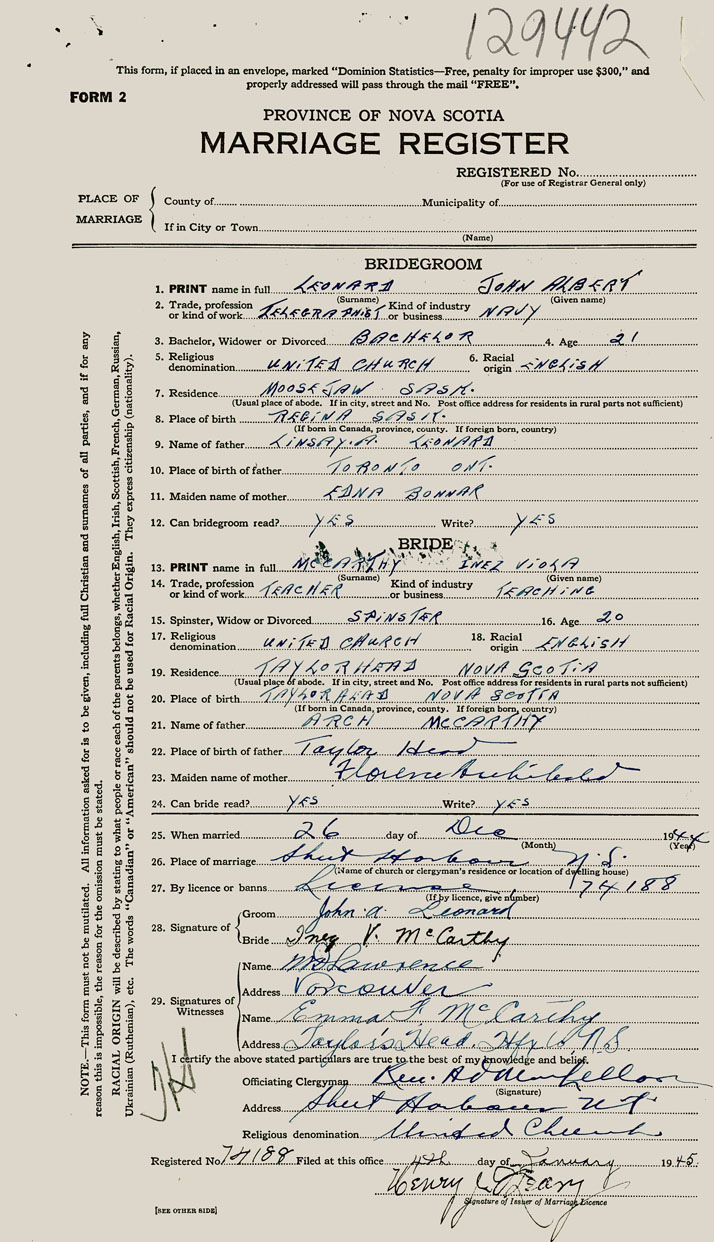 129442
This form, if placed in an envelope, marked “Dominion Statistics—Free, penalty for improper use $300,” and
properly addressed will pass through the mail “FREE”.
FORM 2
PROVINCE OF NOVA SCOTIA
MARRIAGE REGISTER
REGISTERED No.
(For use of Registrar General only)
PLACE OF MARRIAGE
County of Municipality of
If in City or Town
(Name)
BRIDEGROOM
1. PRINT name in full LEONARD JOHN ALBERT
(Surname) (Given name)
2. Trade, profession or kind of work TELEGRAPHIST Kind of industry or business NAVY
3. Bachelor, Widower or Divorced BACHELOR 4. Age 21
5. Religious denomination UNITED CHURCH 6. Racial origin ENGLISH
7. Residence MOOSE JAW SASK.
(Usual place of abode. If in city, street and No. Post office address for residents in rural parts not sufficient)
8. Place of birth REGINA SASK.
(If born in Canada, province, county. If foreign born, country)
9. Name of father LINSAY. A. LEONARD
10. Place of birth of father TORONTO ONT.
11. Maiden name of mother EDNA BONNAR
12. Can bridegroom read? YES Write? YES
BRIDE
13. PRINT name in full MCCARTHY INEZ VIOLA
(Surname) (Given name)
14. Trade, profession or kind of work TEACHER Kind of industry or business TEACHING
15. Spinster, Widow or Divorced SPINSTER 16. Age 20
17. Religious denomination UNITED CHURCH 18. Racial origin ENGLISH
19. Residence TAYLOR HEAD NOVA SCOTIA
(Usual place of abode. If in city, street and No. Post office address for residents in rural parts not sufficient)
20. Place of birth TAYLOR HEAD NOVA SCOTIA
(If born in Canada, province, county. If foreign born, country)
21. Name of father ARCH MCCARTHY
22. Place of birth of father Taylor Head
23. Maiden name of mother Florence Archibald
24. Can bride read? YES Write? YES
25. When married 26 day of Dec 1944
(Month) (Year)
26. Place of marriage Sheet Harbour N.S.
(Name of church or clergyman's residence or location of dwelling house)
27. By licence or banns Licence 74188
(If by licence, give number)
28. Signature of
Groom John A. Leonard
Bride Inez V. McCarthy
29. Signatures of Witnesses
Name Lawrence
Address Vancouver
Name Emma F McCarthy
Address Taylor's Head, Hfx Co N.S.
I certify the above stated particulars are true to the best of my knowledge and belief.
Officiating Clergyman Rev.
(Signature)
Address Sheet Harbour
Religious denomination United Church
Registered No. 74188 Filed at this office 4th day of January 1945.
Henry
Signature of Issuer of Marriage Licence
[SEE OTHER SIDE]
NOTE.—This form must not be mutilated. All information asked for is to be given, including full Christian and surnames of all parties, and if for any
reason this is impossible, the reason for the omission must be stated.
RACIAL ORIGIN will be described by stating to what people or race each of the parents belongs, whether English, Irish, Scottish, French, German, Russian,
Ukrainian (Ruthenian), etc. The words “Canadian” or “American” should not be used for Racial Origin. They express citizenship (nationality).